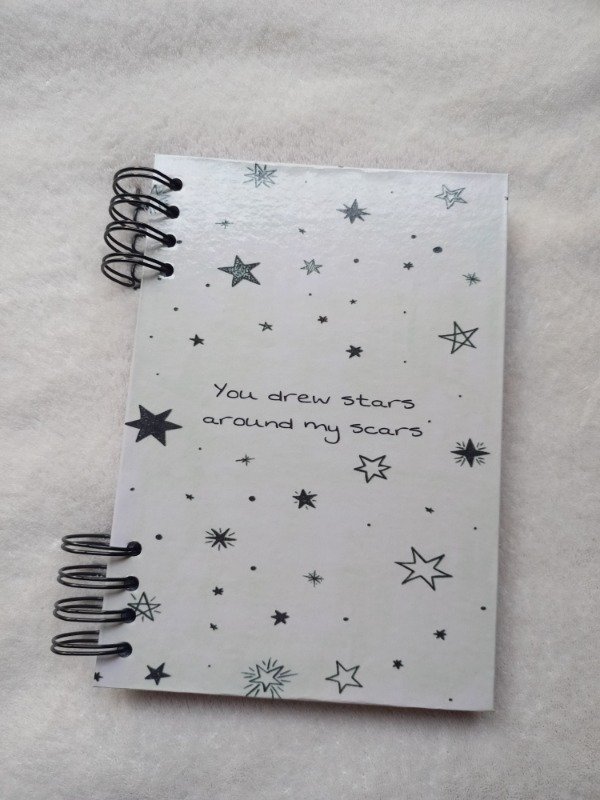 You drew stars
around my scars